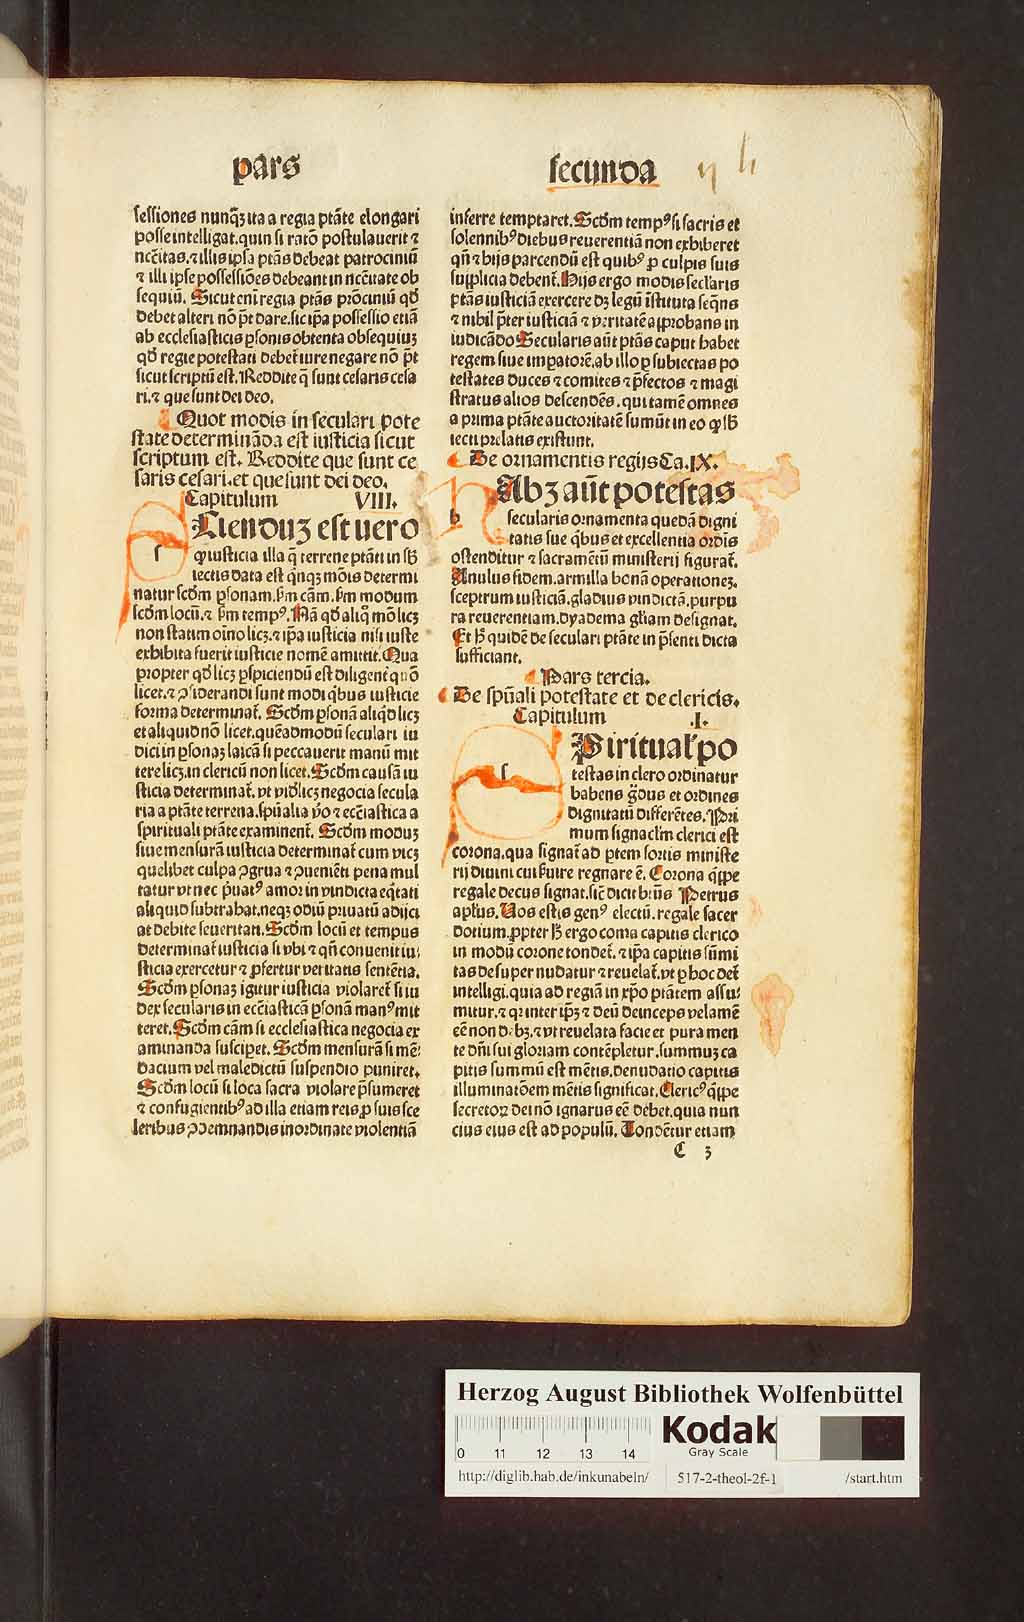 pars
secunda
seſſiones nunq̄ȝ ita a regia ptāte elongari
poſſe intelligat. quin ſi ratō poſtulauerit ⁊
nc̄c̄itas. ⁊ illis ipſa ptās debeat patrociniū
⁊ illi ipſe poſſeſſiōes debeant in nc̄c̄itate ob
ſequiū. Sicut eni regia ptās prōciniū qd̄
debet alteri nō pt̄ dare. ſic ip̄a poſſeſſio etiā
ab eccleſiaſticis ꝑſonis obtenta obſequiuȝ
qd̄ regie poteſtati debet᷑ iure negare nō pt̄
ſicut ſcriptū eſt. Reddite q̄ ſunt ceſaris ceſa
ri. ⁊ que ſunt dei deo.
Quot modis in ſeculari pote
ſtate determināda eſt iuſticia ſicut
ſcriptum eſt. Reddite que ſunt ce
ſaris ceſari. et que ſunt dei deo.
Capitulum VIII.
s
Cienduȝ eſt uero
ꝙ iuſticia illa q̄ terrene ptāti in ſb̄
iectis data eſt qͥnqȝ mōis determi
natur ſcd̄m ꝑſonam. ſm̄ cām. ſm̄ modum
ſcd̄m locū. ⁊ ſm̄ tempꝰ. Nā qd̄ aliqͦ mō licȝ
non ſtatim oīno licȝ. ⁊ ip̄a iuſticia niſi iuſte
exhibita fuerit iuſticie nomē amittit. Qua
propter qd̄ licȝ ꝑſpiciendū eſt diligent᷑ quō
licet. ⁊ ꝯſiderandi ſunt modi qͥbus iuſticie
forma determinat᷑. Scd̄m ꝑſonā aliqͥd licȝ
et aliquid nō licet. quēadmodū ſeculari iu
dici in ꝑſonaȝ laicā ſi peccauerit manū mit
tere licȝ. in clericū non licet. Scd̄m cauſā iu
ſticia determinat᷑. vt vidȝ licȝ negocia ſecula
ria a ptāte terrena. ſpūalia v̊o ⁊ ecc̄iaſtica a
ſpirituali ptāte examinent᷑. Scd̄m moduȝ
ſiue menſurā iuſticia determinat᷑ cum vicȝ
quelibet culpa ꝯgrua ⁊ ꝯueniēti pena mul
tatur vt nec pͥuatꝰ amor in vindicta eqͥtati
aliquid ſubtrahat. neqȝ odiū priuatū adijci
at debite ſeueritati. Scd̄m locū et tempus
determinat᷑ iuſticia ſi vbi ⁊ qn̄ conuenit iu⸗
ſticia exercetur ⁊ ꝓfertur veritatis ſentētia.
Scd̄m ꝑſonaȝ igitur iuſticia violaret᷑ ſi iu
dex ſecularis in ecc̄iaſticā ꝑſonā manꝰ mit
teret. Scd̄m cām ſi eccleſiaſtica negocia ex
aminanda ſuſcipet. Scd̄m menſurā ſi mē⸗
dacium vel maledictū ſuſpendio puniret.
Scd̄m locū ſi loca ſacra violare p̄ſumeret
⁊ confugientibꝰ ad illa etiam reis ꝓ ſuis ſce
leribus ꝯdemnandis inordinate violentiā
inferre temptaret. Scd̄m tempꝰ ſi ſacris et
ſolennibꝰ diebus reuerentiā non exhiberet
qn̄ ⁊ hijs parcendū eſt quibꝰ ꝓ culpis ſuis
ſupplicia debent᷑. Hijs ergo modis ſeclaris
ptās iuſticiā exercere dȝ legū īſtituta ſeqn̄s
⁊ nihil p̄ter iuſticiā ⁊ veritatē approbans in
iudicādo Secularis aūt ptās caput habet
regem ſiue impatorē. ab illo ꝑ ſubiectas po
teſtates duces ⁊ comites ⁊ p̄fectos ⁊ magi
ſtratus alios deſcendēs. qui tamē omnes
a prima ptāte auctoritatē ſumūt in eo ꝙ ſb̄
iecti prelatis exiſtunt.
De ornamentis regijs Ca. IX.
h
Abȝ aūt poteſtas
ſecularis ornamenta quedā digni
tatis ſue qͥbus et excellentia ordīs
oſtenditur ⁊ ſacramētū miniſterij figurat᷑.
Anulus fidem. armilla bonā operationeȝ.
ſceptrum iuſticiā. gladius vindictā. purpu
ra reuerentiam. dyadema gl̄iam deſignat.
Et ſꝫ quidē de ſeculari ptāte in p̄ſenti dicta
ſufficiant.
Pars tercia.
De ſpūali poteſtate et de clericis.
Capitulum .I.
s
Piritual᷑ po
teſtas in clero ordinatur
habens gͣdus et ordines
dignitatū differētes. Pri
mum ſignacl̄m clerici eſt
corona. qua ſignat᷑ ad ꝑtem ſortis miniſte
rij diuini cui ſeruire regnare ē. Corona qͥppe
regale decus ſignat. ſic̄ dicit bt̄us Petrus
apl̄us. Uos eſtis genꝰ electū. regale ſacer
dotium. ꝓpter ſꝫ ergo coma capitis clerico
in modū corone tondet᷑. ⁊ ip̄a capitis ſūmi
tas deſuper nudatur ⁊ reuelat᷑. vt ꝑ hoc det᷑
intelligi. quia ad regiā in xp̄o ptātem aſſu⸗
mitur. ⁊ qͥ inter ip̄ȝ ⁊ deū deinceps velamē
eē non dꝫbȝ. ⁊ vt reuelata facie et pura men
te dn̄i ſui gloriam contēpletur. ſummuȝ ca
pitis ſummū eſt mētis. denudatio capitis
illuminatōem mētis ſignificat. Clericꝰ qͥppe
ſecretoꝝ dei nō ignarus eē debet. quia nun
cius eius eſt ad populū. Tondētur etiam
C 3
Herzog August Bibliothek Wolfenbüttel
Kodak
Gray Scale
0 11 12 13 14
http://diglib.hab.de/inkunabeln/ 517-2-theol-2f-1 /start.htm